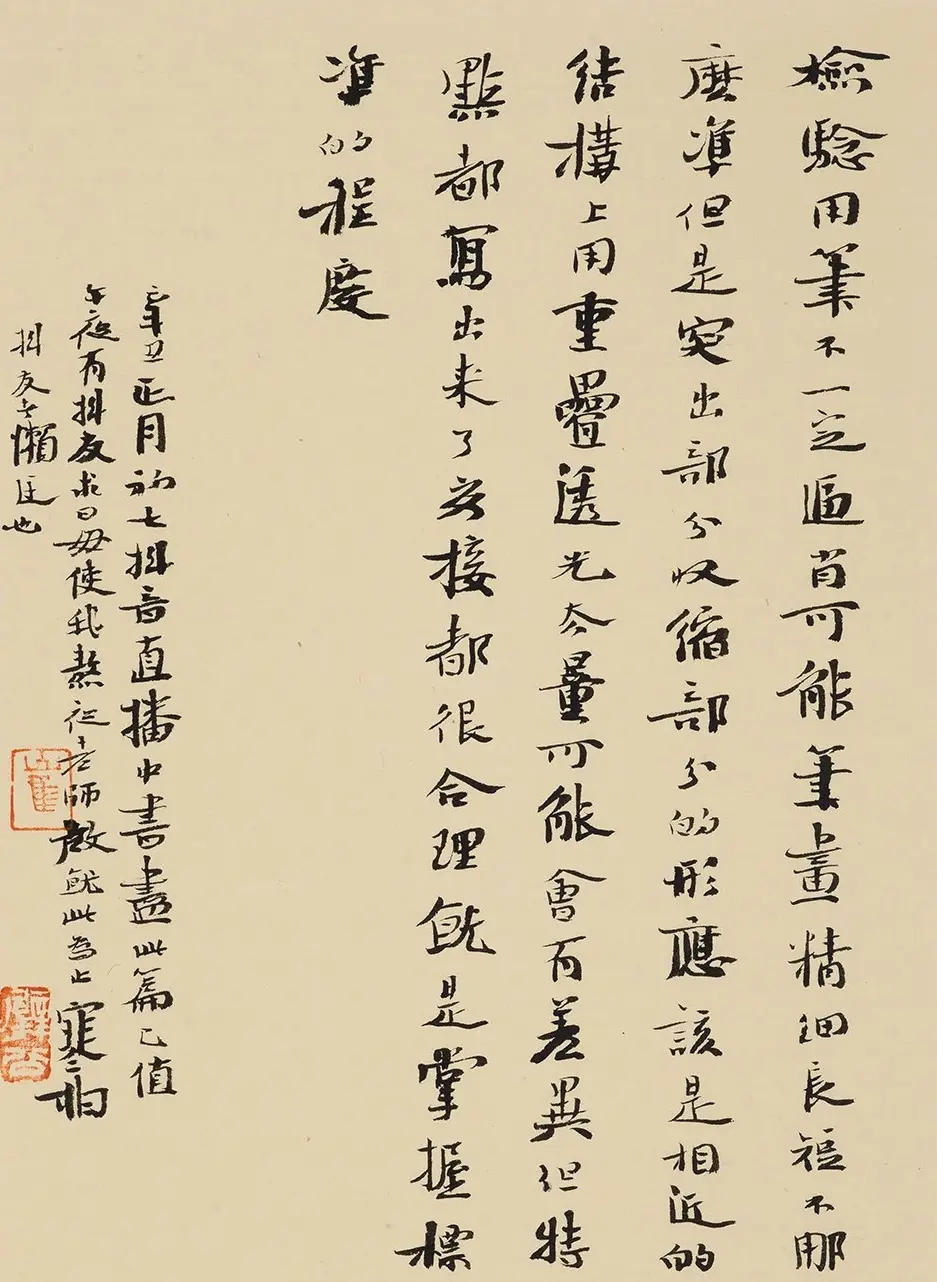 檢驗用筆不一定逼肖可能筆畫精細長短不那
麼準但是突出部分收縮部分的形應該是相近的
結構上用重疊透光太量可能會有差異但特
點都寫出來了安接都很合理既是掌握標
准的程度
辛丑正月初七抖音直播中書盡此篇已值
午夜有抖友求曰毋使我熬夜老師啟就此為止寒柏
抖友亦懶匡也